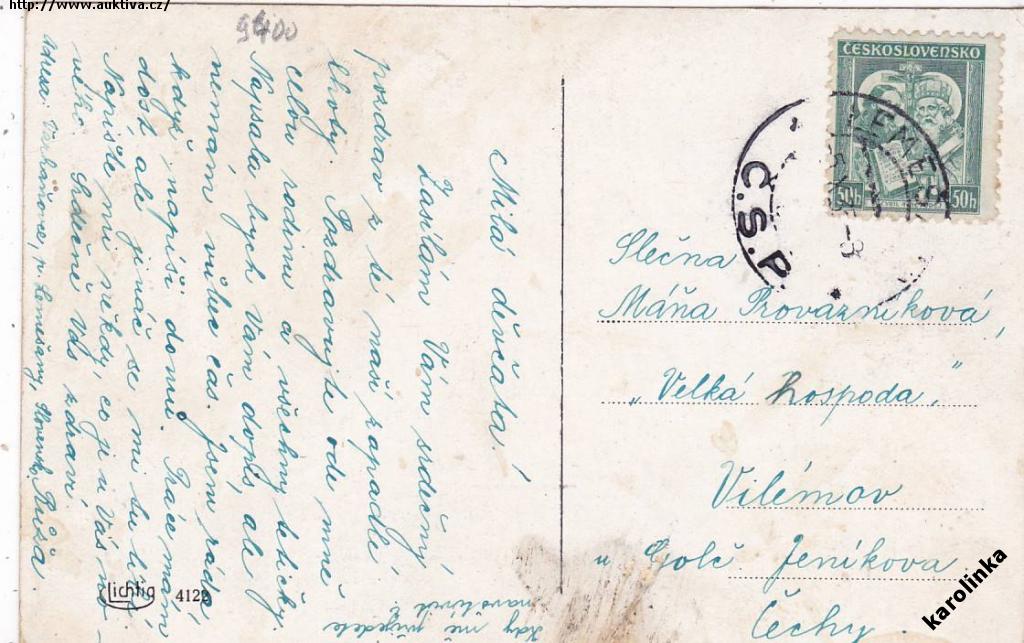 http://www.auktiva.cz/
9400
Milá děvčata!
Zasílám Vám srdečný
pozdrav z té naší zapadlé
lhoty. Pozdravujte ode mne
celou rodinu a všechny tetičky.
Napsala bych Vám dopis, ale
nemám vůbec čas. Jsem ráda,
když napíši domů. Práce mám
dost ale jináč se mi tu líbí.
Napište mi někdy, co je u Vás no-
vého. Srdečně Vás zdraví
Růža
Adresa: p. Lemešany, Slovensko
Kdy mě přijedete
navštívit?
ČESKOSLOVENSKO
50h 50h
C.S.P.
Slečna
Máňa Provazníková,
"Velká hospoda,"
Vilémov
u Golč Jeníkova
Čechy.
Lichtig 4122
karolinka